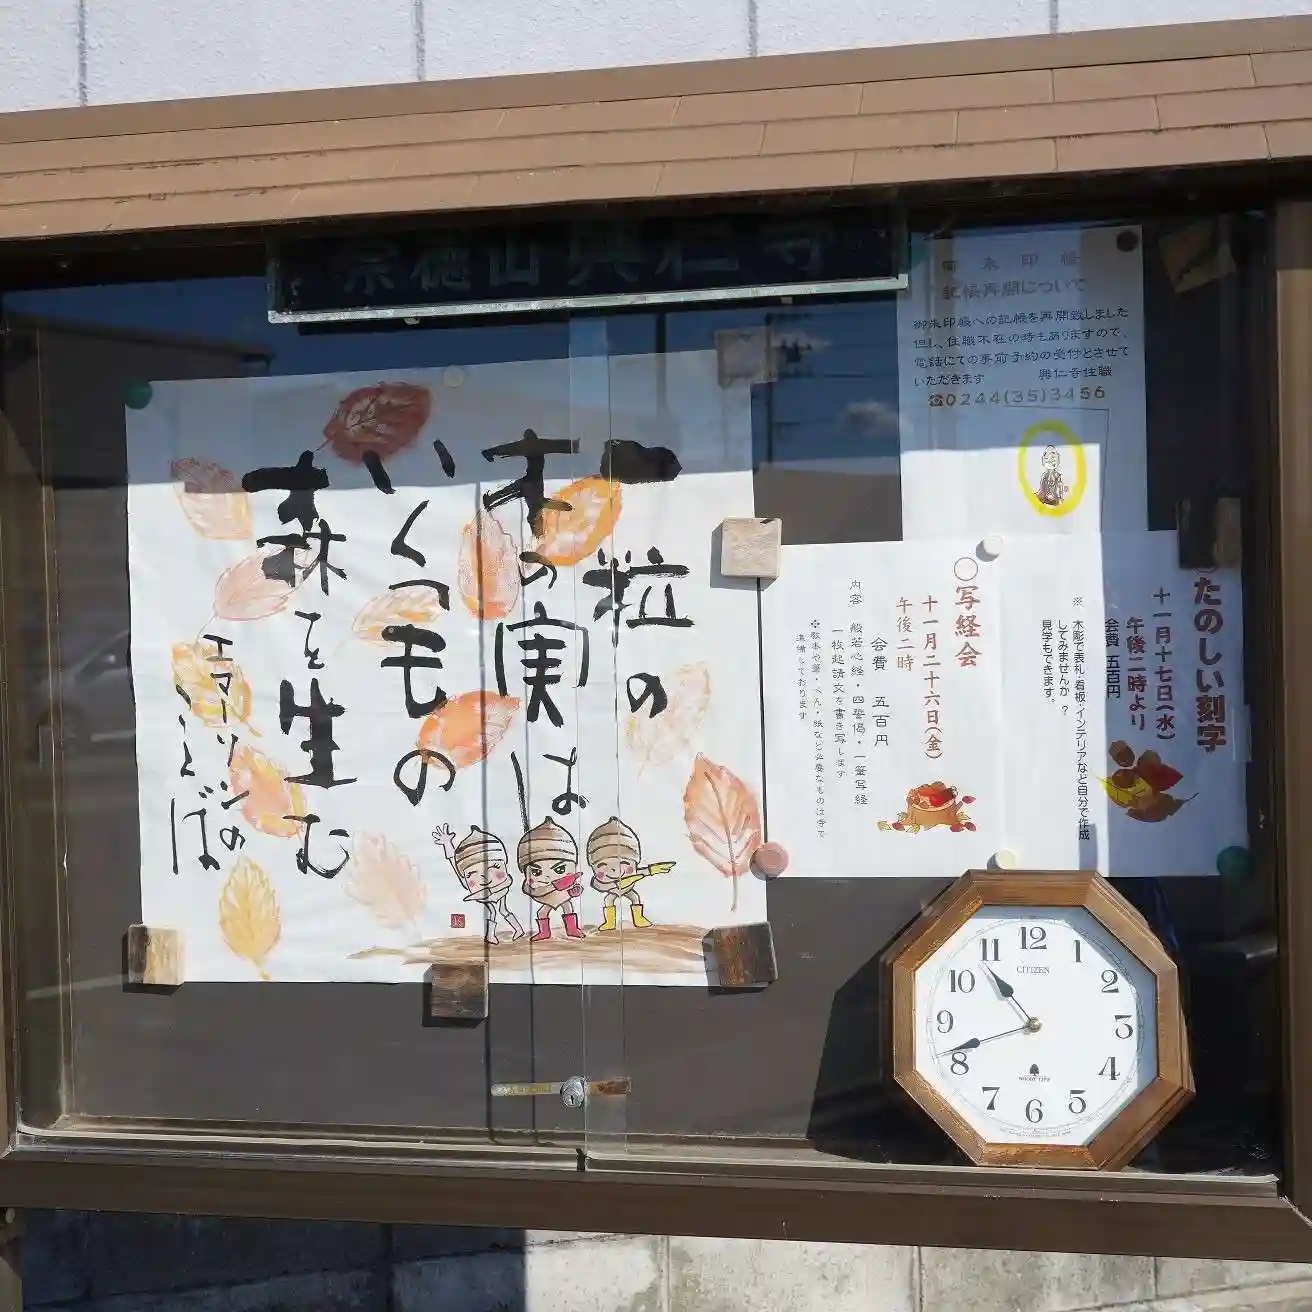 宗徳山興仁寺
一粒の
木の実は
いくつもの
森を生む
エマーソンの
ことば
御朱印帳
記帳再開について
御朱印帳への記帳を再開致しました
但し、住職不在の時もありますので、
電話にての事前予約の受付とさせて
いただきます　興仁寺住職
☎0244(35)3456
たのしい刻字
十一月十七日(水)
午後二時より
会費 五百円
※ 木彫で表札・看板・インテリアなど自分で作成
してみませんか？
見学もできます。
〇写経会
十一月二十六日(金)
午後二時
会費 五百円
内容 般若心経・四誓偈・一筆写経
一枚起請文を書き写します
※教本や筆・ぺん・紙など必要なものは寺で
準備しております
CITIZEN
12
1
2
3
4
5
6
7
8
9
10
11